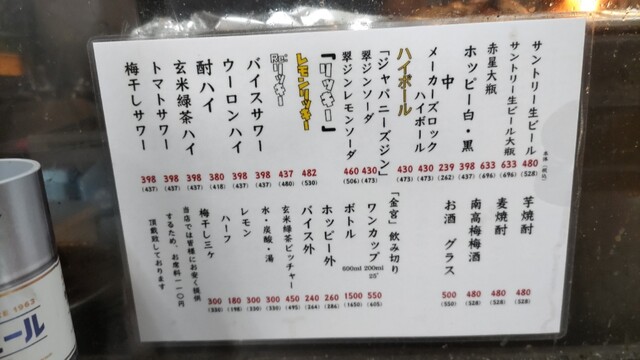 本体 (税込)
サントリー生ビール 480 (528)
サントリー生ビール大瓶 633 (696)
赤星大瓶 633 (696)
ホッピー白・黒 398 (437)
中 239 (262)
メーカーズロック
ハイボール 430 (473)
ハイボール 430 (473)
「ジャパニーズジン」
翠ジンソーダ 430 (473)
翠ジンレモンソーダ 460 (506)
『リッキー』
レモンリッキー 482 (530)
Re:リッキー 437 (480)
バイスサワー 398 (437)
ウーロンハイ 398 (437)
酎ハイ 380 (418)
玄米緑茶ハイ 398 (437)
トマトサワー 398 (437)
梅干しサワー 398 (437)
芋焼酎 480 (528)
麦焼酎 480 (528)
南高梅梅酒 480 (528)
お酒 グラス 500 (550)
「金宮」飲み切り
ワンカップ 200ml 25° 550 (605)
ボトル 600ml 1500 (1650)
ホッピー外 260 (286)
バイス外 240 (264)
玄米緑茶ピッチャー 450 (495)
水・炭酸・湯 300 (330)
レモン 300 (330)
ハーフ 180 (198)
梅干し三ケ 300 (330)
当店では皆様にお安く提供
するため、お席料一一〇円
頂戴致しております
ール